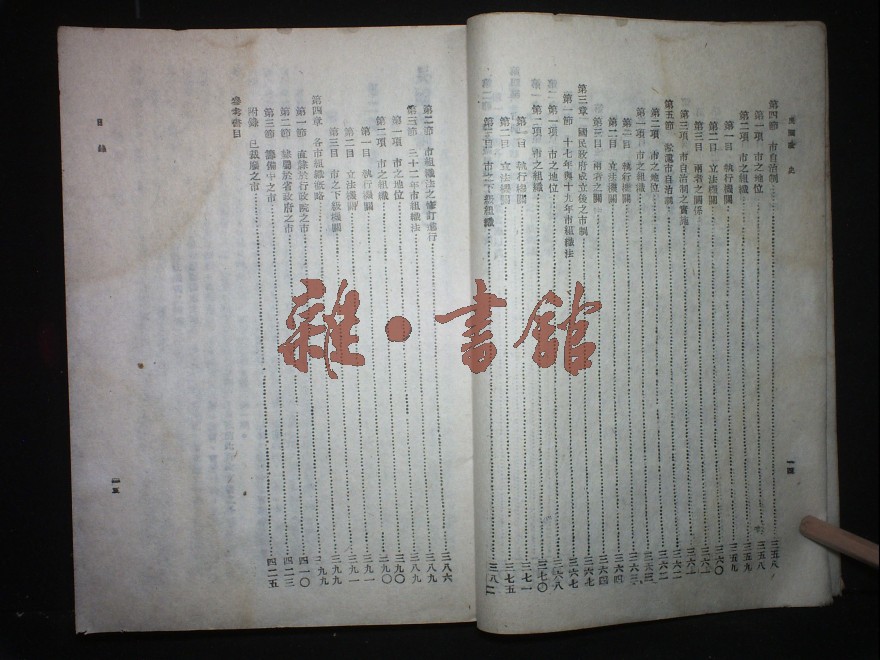 民國政史
第四節　市自治制……三五八
第一項　市之地位……三五八
第二項　市之組織……三五九
第一目　執行機關……三五九
第二目　立法機關……三六〇
第三目　兩者之關係……三六一
第三項　市自治制之實施……三六一
第五節　淞滬市自治制……三六二
第一項　市之地位……三六二
第二項　市之組織……三六三
第一目　執行機關……三六三
第二目　立法機關……三六四
第三目　兩者之關係……三六六
第三章　國民政府成立後之市制……三六七
第一節　十七年與十九年市組織法……三六七
第一項　市之地位……三六八
第二項　市之組織……三七〇
第一目　執行機關……三七一
第二目　立法機關……三七五
第三目　市之下級組織……三八二
一四
第二節　市組織法之修訂進行……三八六
第三節　三十二年市組織法……三八九
第一項　市之地位……三九〇
第二項　市之組織……三九〇
第一目　執行機關……三九一
第二目　立法機關……三九一
第三目　市之下級機關……三九九
第四章　各市組織概略……三九九
第一節　直隸於行政院之市……四一〇
第二節　隸屬於省政府之市……四二三
第三節　籌備中之市……四二五
附錄　已裁廢之市
參考書目
目錄
一五
雜·書館